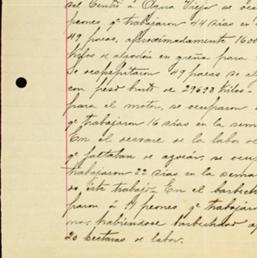 del Centro á Agua Vieja se ocu
peones q' trabajaron 44 días en
49 pacas, aproximadamente 1600
kilos de algodón en greña para
Se
49 pacas se al
con peso bruto de 29628 kilos
para el motor, se ocuparon
q' trabajaron 16 días en la sem
En el desvare de la labor
q' faltaban de se ocu
trabajaron 22 días en la semana
este trabajo - En el barbech
paron á 19 peones q' trabajaro
nas, habiéndose barbechado ap
20 hectáreas de labor.